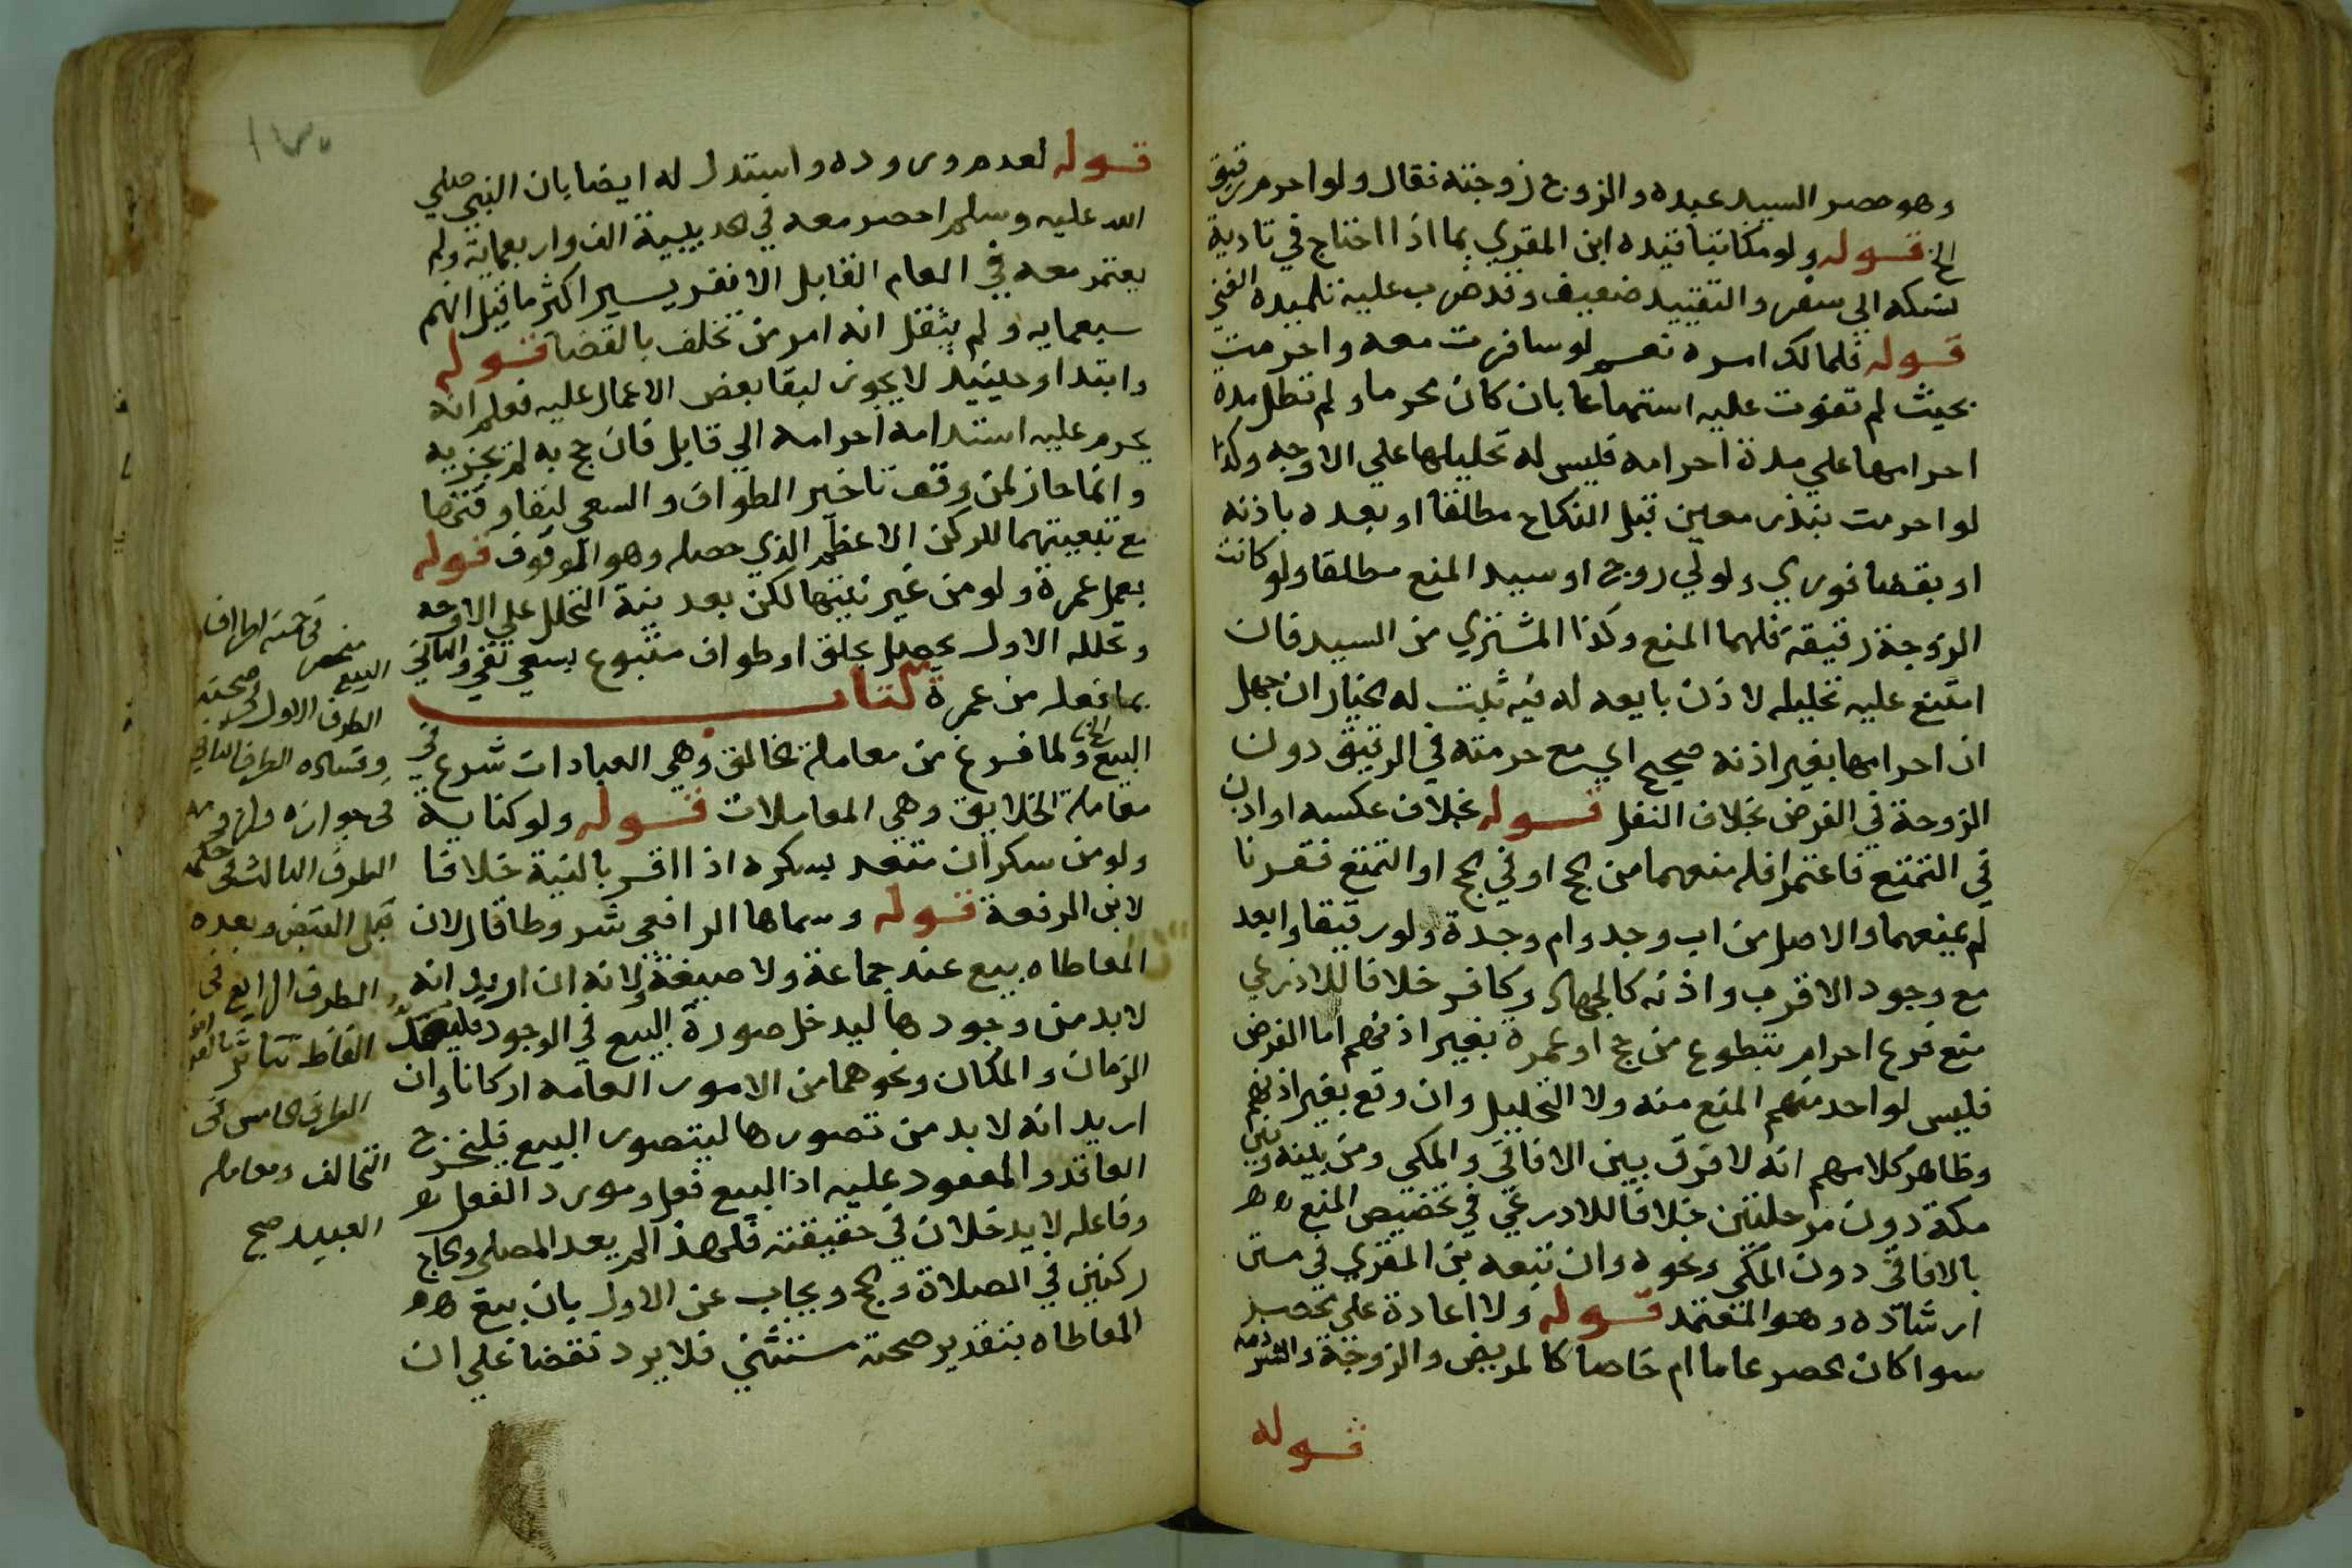 وهو حصر السيد عبده والزوج زوجته فقال ولو احرم رقيق
الخ قوله ولو مكاتبا قيده ابن المقري بما اذا احتاج في تادية
نسكه الي سفر والتقييد ضعيف وقد ضرب عليه تلميده الفتي
قوله فلمالك امره نعم لو سافرت معه واحرمت
بحيث لم تفوت عليه استمتاعا بان كان محرما ولم تطل مدة
احرامها علي مدة احرامه فليس له تحليلها علي الاوجه وكذا
لو احرمت بنذر معين قبل النكاح مطلقا او بعده باذنه
او بقضا فوري ولولي زوج او سيد المنع مطلقا ولو كانت
الزوجة رقيقة فلهما المنع وكذا المشتري من السيد فان
امتنع عليه تحليله لاذن بايعه له فيه ثبت له الخيار ان جهل
ان احرامها بغير اذنه صحيح اي مع حرمته في الرقيق دون
الزوجة في الفرض بخلاف النفل قوله بخلاف عكسه او اذن
في التمتع فاعتمر فله منعهما من الحج او في الحج او التمتع فقرنا
لم يمنعهما والاصل من اب وجد وام وجدة ولو رقيقا وابعد
مع وجود الاقرب واذنه كالجهاد وكافر خلافا للاذرعي
منع فرع احرام بتطوع من حج او عمرة بغير اذنهم اما الفرض
فليس لواحد منهم المنع منه ولا التحليل وان وقع بغير اذنهم
وظاهر كلامهم انه لا فرق بين الافاقي والمكي ومن بينه وبين
مكة دون مرحلتين خلافا للادرعي في تخصيص المنع
بالافاقي دون المكي ونحوه وان تبعه بن المقري في متن
ارشاده وهو المعتمد قوله ولا اعادة علي محصر
سوا كان الحصر عاما ام خاصا كالمريض والزوجة والشرذمة
قوله
قوله لعدم وروده واستدل له ايضا بان النبي صلي
الله عليه وسلم احصر معه في الحديبية الف واربعماية ولم
يعتمر معه في العام القابل الا نفر يسير اكثر ما قيل انهم
سبعمايه ولم ينقل انه امر من تخلف بالقضا قوله
وابتدا وحينيد لا يجوز لبقا بعض الاعمال عليه فعلم انه
يحرم عليه استدامة احرامه الي قابل فان حج به لم يجزيه
وانما جاز لمن وقف تاخير الطواف والسعي لبقا وقتهما
مع تبعيتهما للركن الاعظم الذي حصله وهو الوقوف قوله
بعمل عمرة ولو من غير نيتها لكن بعد نية التحلل علي الاوجه
وتحلله الاول يحصل بحلق او طواف متبوع بسعي بقي والثاني
بما فعله من عمرة كتاب
البيع الخ ولما فرغ من معاملة الخالق وهي العبادات شرع في
معاملة الخلايق وهي المعاملات قوله ولو كناية
ولو من سكران متعد بسكره اذا اقر بالنية خلافا
لابن الرفعة قوله وسماها الرافعي شروطا قال لان
المعاطاه بيع عند جماعة ولا صيغة ولانه ان اريد انه
لابد من وجودها ليدخل صورة البيع في الوجود فليعد
الزمان والمكان ونحوهما من الامور العامه اركانا وان
اريد انه لابد من تصورها ليتصور البيع فليخرج
العاقد والمعقود عليه اذ البيع فعل ومورد الفعل
وفاعله لا يدخلان في حقيقته فلهذا لم يعد المصلي والحاج
ركنين في الصلاة والحج ويجاب عن الاول بان بيع
المعاطاه بتقدير صحته مستثني فلا يرد نقضا علي ان
في خمسة اطراف
البيع منحصر
الطرف الاول في صحته
وفساده الطرف الثاني
في جوازه ولزومه
الطرف الثالث في حكمه
قبل القبض وبعده
الطرف الرابع في
الفاظ
الطرف الخامس في
التحالف ومعاملة
العبيد صح